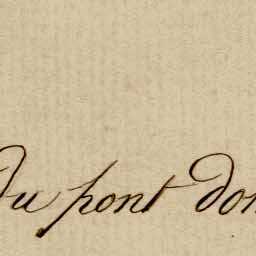 du pont don